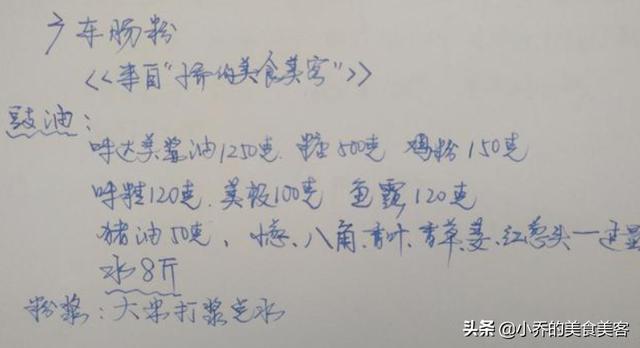 广东肠粉
<<来自"小乔的美食美客">>
豉油：
味达美酱油1250克、糖500克 鸡粉150克
味精120克、美极100克 鱼露120克
猪油50克、小葱、八角、香叶、香草、姜、红葱头一适量
水8斤
粉浆：大米打浆兑水
头条 @小乔的美食美客